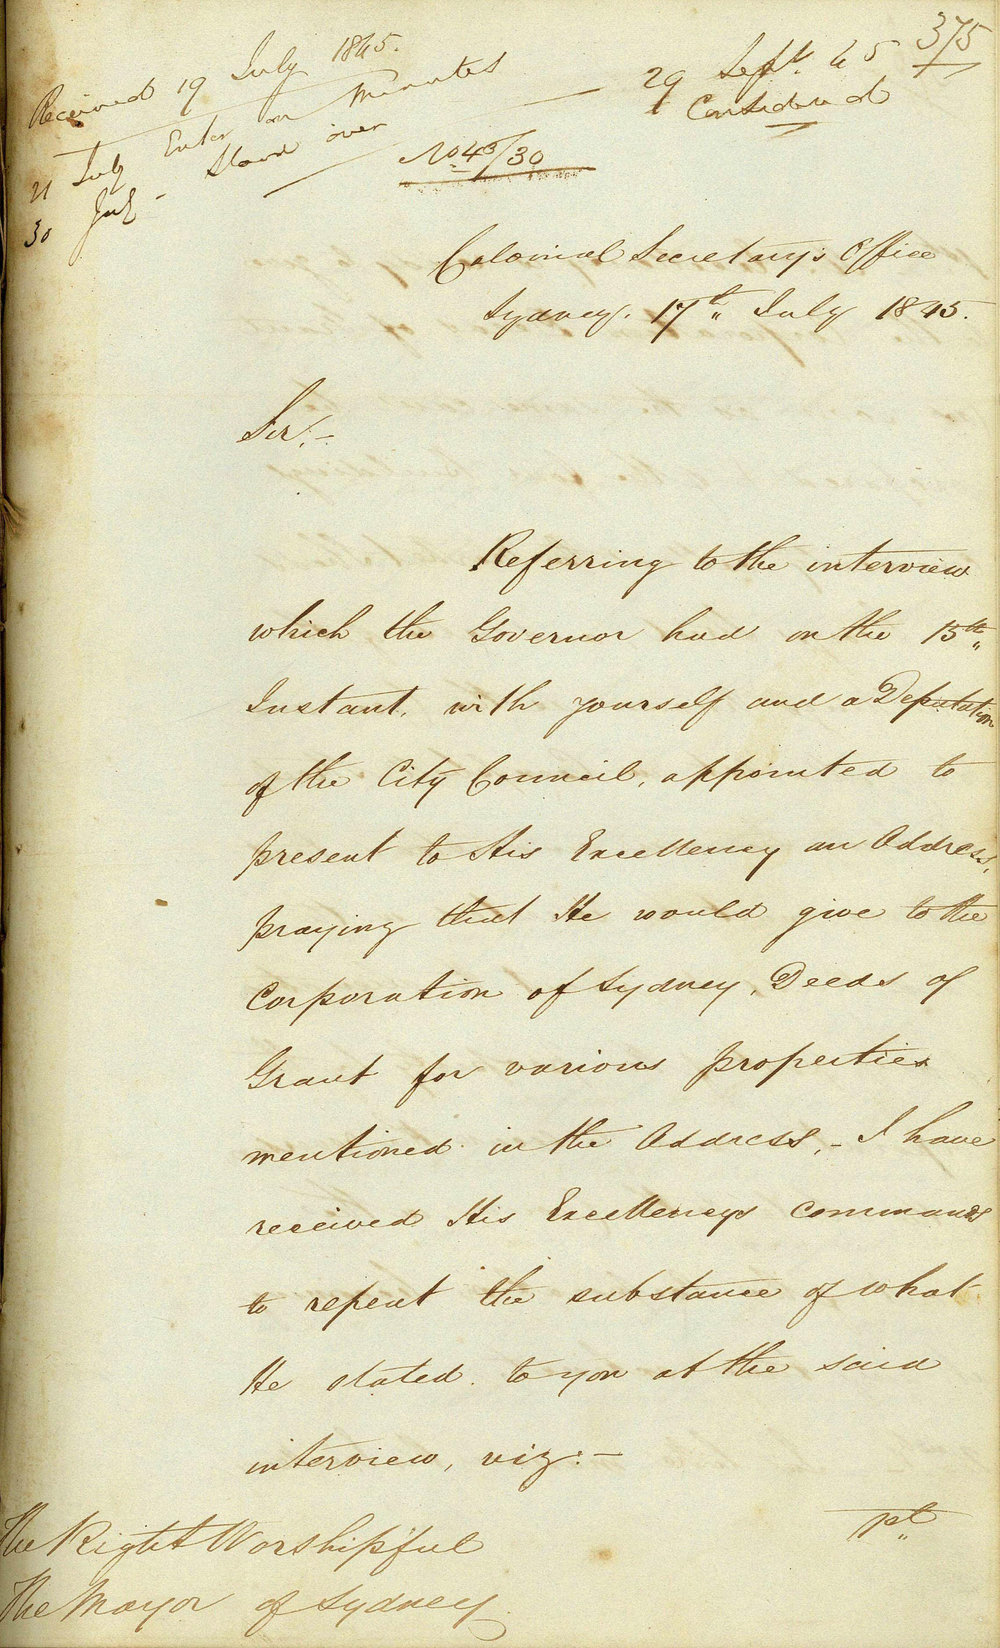 375
Received 19 July 1845.
21 July Enter on Minutes
30 July - Stand over
29 Septr. 45
Considered
No 43/30
Colonial Secretary's Office
Sydney. 17th July 1845.
Sir,-
Referring to the interview
which the Governor had on the 15th
Instant, with yourself and a Deputation
of the City Council, appointed to
present to His Excellency an Address,
praying that He would give to the
Corporation of Sydney, Deeds of
Grant for various properties
mentioned in the Address,- I have
received His Excellencys commands
to repeat the substance of what
He stated to you at the said
interview, viz:-
1st
The Right Worshipful
The Mayor of Sydney.